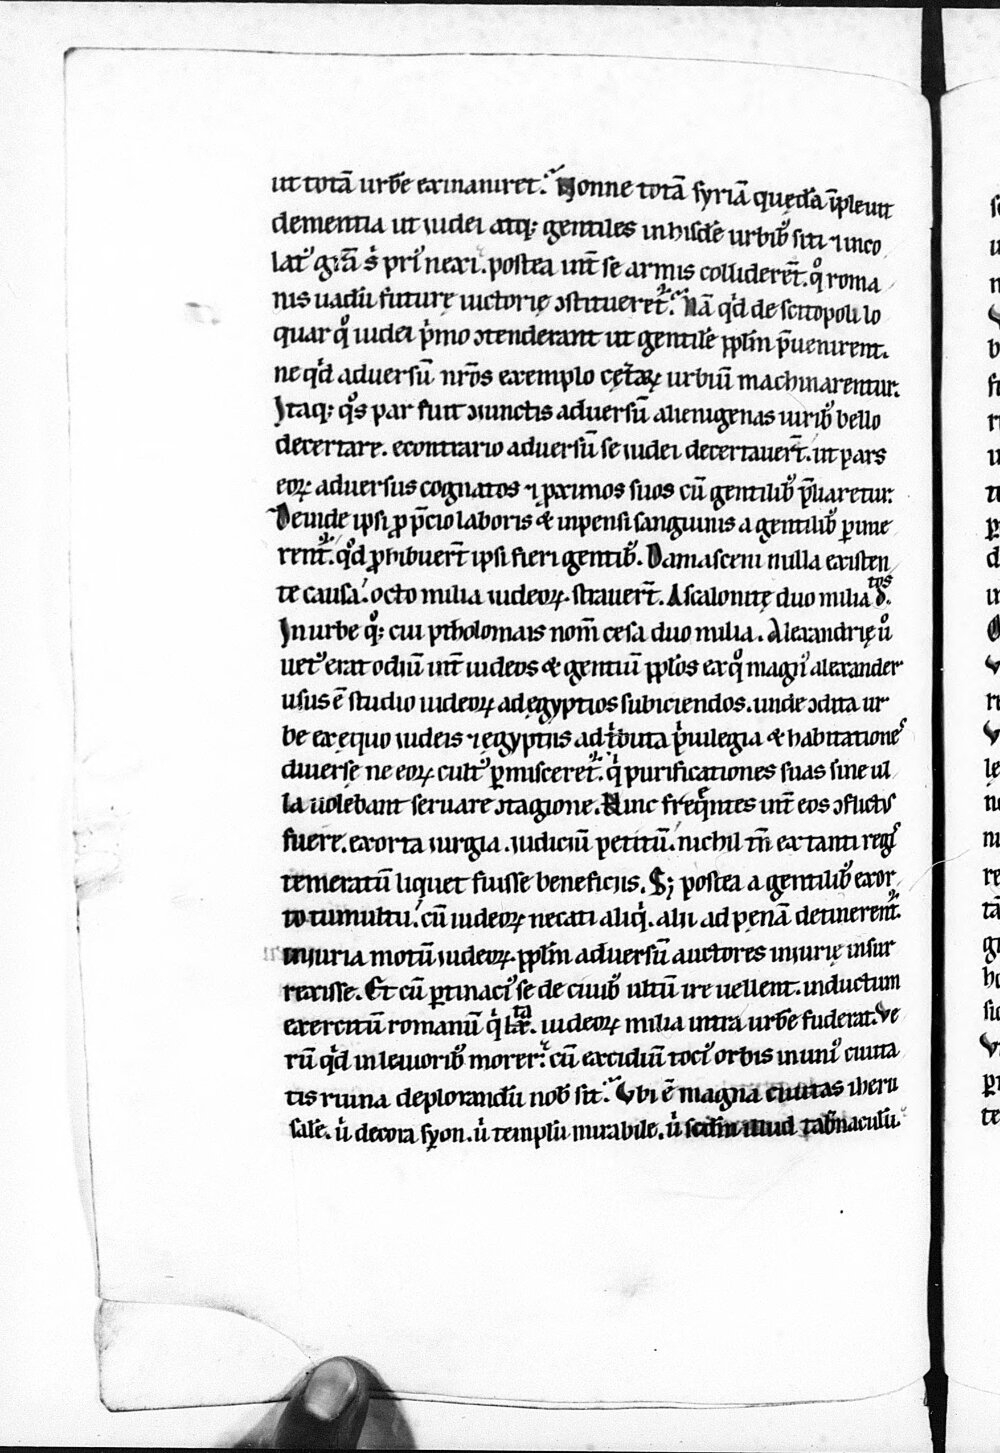 ut totā urbē exinaniret. Nonne totā syriā quędā īpleuit
dementia ut iudei atq; gentiles in hisdē urbib; siti ⁊ inco
lat᷒ grā s; pri᷒ nexi. postea int̄ se armis collideret̄. qͦ roma
nis uadū futurę uictorię ↄstitueret̄. Nā qͥd de scitopoli lo
quar qͦ iudei pͥmo ↄtenderant ut gentilē pplm̄ p̄uenirent.
ne qͥd aduersū nr̄os exemplo cęt̄aꝝ urbiū machinarentur.
Itaq; qͦs par fuit iunctis aduersū alienigenas uirib; bello
decertare. econtrario aduersū se iudei decertauer̄t. ut pars
eoꝝ aduersus cognatos ⁊ ꝓximos suos cū gentilib; p̄liaretur.
Deinde ipsi ꝓ p̄cio laboris & inpensi sanguinis a gentilib; ꝑime
rent̄. qͦd ꝓhibuer̄t ipsi fieri gentib;. Damasceni nulla existen
te causa. octo milia iudeoꝝ strauer̄t. Ascalonitę duo milia ꝺ. tos
In urbe q; cui ptholomais nom̄ cesa duo milia. Alexandrię uͦ
uet᷒ erat odiū int̄ iudeos & gentiū pplos ex qͦ magn᷒ alexander
usus ē studio iudeoꝝ ad egyptios subiciendos. unde ↄdita ur
be ex ęquo iudeis ⁊ egyptiis adtͥbuta pͥuilegia & habitationes
diuersę ne eoꝝ cult᷒ ꝑmisceret̄. qͥ purificationes suas sine ul
la uolebant seruare ↄtagione. Nunc freqͣntes int̄ eos ↄflict᷒
fuere. exorta iurgia. iudiciū petitū. nichil tn̄ ex tanti regis
temeratū liquet fuisse beneficiis. S; postea a gentilib; exor
to tumultu. cū iudeoꝝ necati aliqͥ. alii ad penā detinerent̄.
iniuria motū iudeoꝝ pplm̄ aduersū auctores iniurię insur
rexisse. Et cū ꝑtinaci᷒ se de ciuib; ultū ire uellent. inductum
exercitū romanū qͥ lx. ta iudeoꝝ milia intra urbē fuderat. Ve
rū qͥd in leuiorib; moror. cū excidiū toci᷒ orbis in uni᷒ ciuita
tis ruina deplorandū nob̄ sit. Vbi ē magna ciuitas iheru
salē. uͥ decora syon. uͥ templū mirabile. uͥ scdm̄ illud tab̄naculū.